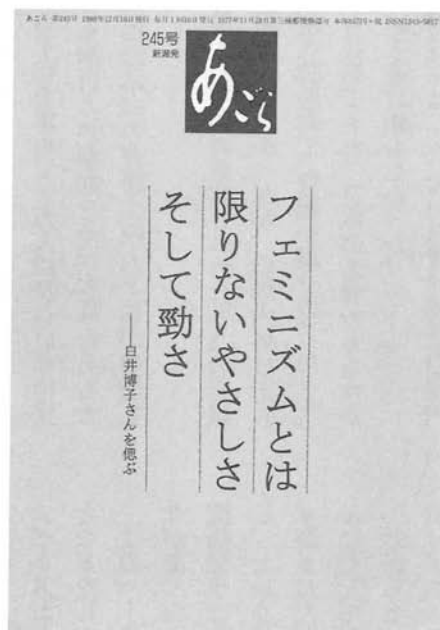 245号
新潟発
あごら
フェミニズムとは
限りないやさしさ
そして勁さ
——白井博子さんを偲ぶ